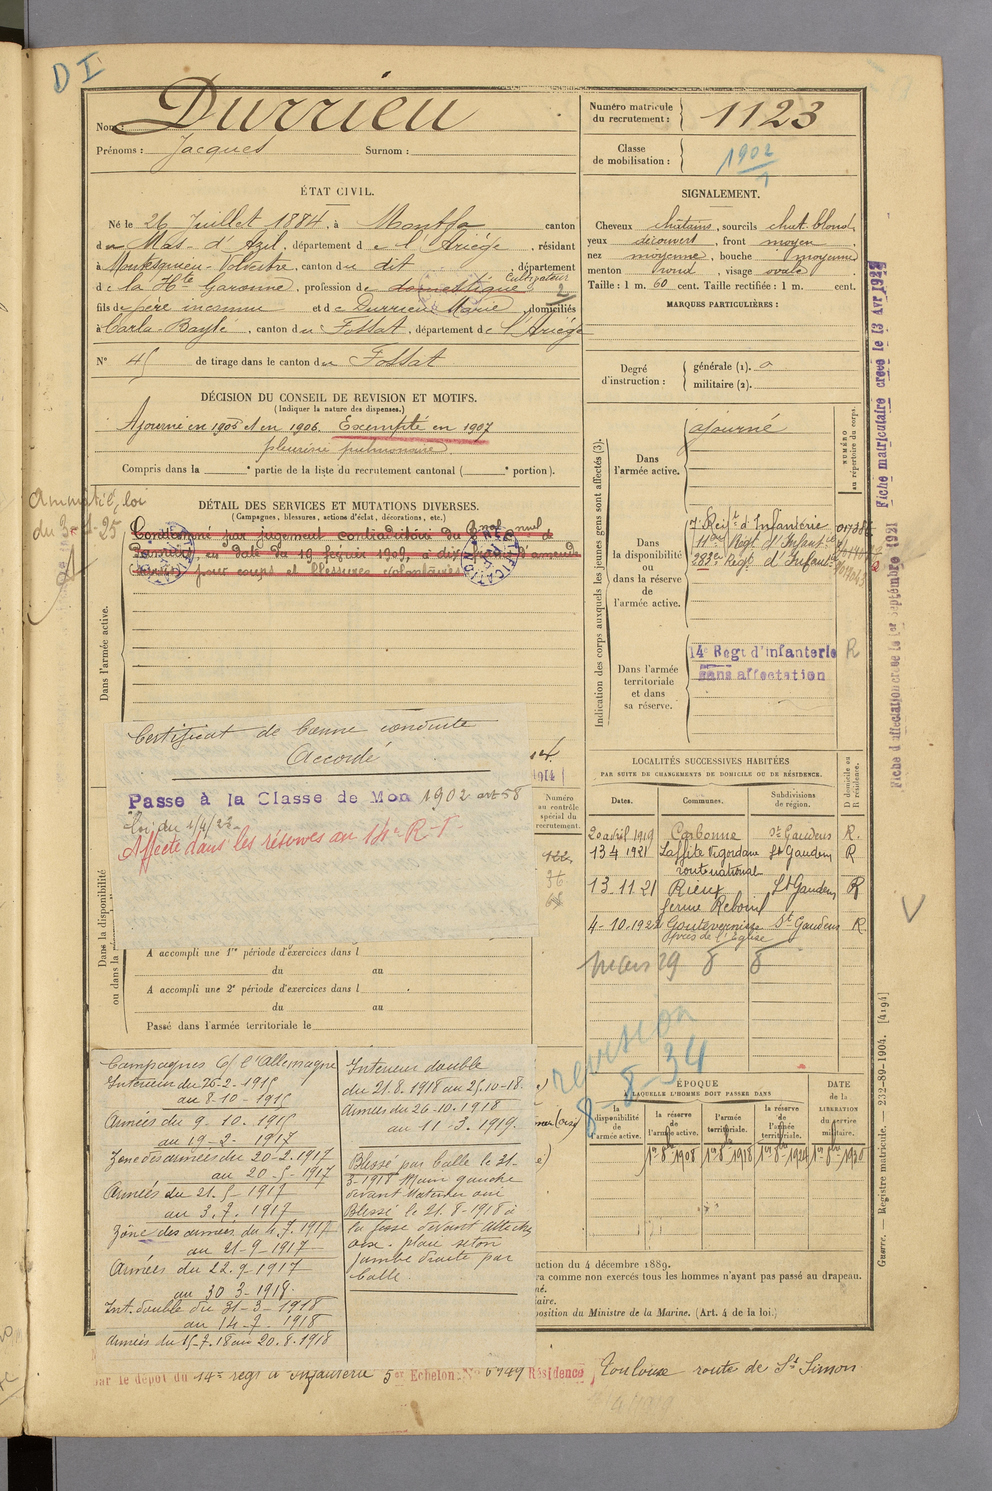 D I
Nom : Durrieu
Prénoms : Jacques Surnom :
Numéro matricule
du recrutement : 1123
Classe
de mobilisation : 1902
ÉTAT CIVIL.
Né le 26 Juillet 1884, à Montfa canton
du Mas-d'Azil, département de l'Ariège, résidant
à Montesquieu-Volvestre, canton du dit, département
de la Hte Garonne, profession de domestique cultivateur 2
fils de père inconnu et de Durrieu Marie, domiciliés
à Carla-Bayle, canton du Fossat, département de l'Ariège
N° 45 de tirage dans le canton du Fossat
SIGNALEMENT.
Cheveux chatains, sourcils chat. blond,
yeux découvert, front moyen
nez moyenne, bouche moyenne
menton rond, visage ovale
Taille : 1 m. 60 cent. Taille rectifiée : 1 m. cent.
MARQUES PARTICULIÈRES :
Degré
d'instruction :
générale (1). 0
militaire (2).
DÉCISION DU CONSEIL DE REVISION ET MOTIFS.
(Indiquer la nature des dispenses.)
Ajourné en 1905 et en 1906. Exempté en 1907
pleurésie pulmonaire
Compris dans la e partie de la liste du recrutement cantonal ( e portion).
DÉTAIL DES SERVICES ET MUTATIONS DIVERSES.
(Campagnes, blessures, actions d'état, décorations, etc.)
Amnistié, loi
du 3-1-25
Condamné par jugement contradictoire du
en date du 19 février 1909, à d'amende
pour coups et blessures volontaires
Dans l'armée active.
Certificat de bonne conduite
Accordé
Passé à la Classe de Mon 1902 art 58
loi du 1/4/23
Affecté dans les réserves au 14e R.I.
Dans la disponibilité
ou dans la
1914
Numéro
au contrôle
spécial du
recrutement.
A accompli une 1re période d'exercices dans l
du au
A accompli une 2e période d'exercices dans l
du au
Passé dans l'armée territoriale le
Indication des corps auxquels les jeunes gens sont affectés (3).
NUMÉRO
au répertoire du corps.
Dans
l'armée active.
ajourné
Dans
la disponibilité
ou
dans la réserve
de
l'armée active.
7e Regt d'Infanterie
11e Regt d'Infant
283e Reg. d'Infant
Dans l'armée
territoriale
et dans
sa réserve.
14e Regt d'infanterie R
Sans affectation
Fiche matriculaire créée le 13 Avr 1927
Fiche d'affectation créée le 1er Septembre 1921
LOCALITÉS SUCCESSIVES HABITÉES
PAR SUITE DE CHANGEMENTS DE DOMICILE OU DE RÉSIDENCE.
Dates. Communes. Subdivisions
de région. D domicile ou
R résidence.
20 avril 1919 Carbonne St Gaudens R.
13 4 1921 Laffite Vigordane St Gaudens R
route national
13.11.21 Rieux St Gaudens R
ferme Reboul
4-10.1922 Goutevernisse St Gaudens R
près de l'Eglise
mars 29
revision
8-8-34
ÉPOQUE
À LAQUELLE L'HOMME DOIT PASSER DANS
DATE
de la
LIBÉRATION
du service
militaire.
la
disponibilité
de
l'armée active.
la réserve
de
l'armée active.
l'armée
territoriale.
la réserve
de
l'armée
territoriale.
1er 8bre 1908 1er 8bre 1918 1er 8bre 1924 1er 8bre 1930
Campagnes C/ l'Allemagne
Intérieur du 26-2-1915
au 8-10-1915
Armées du 9-10.1915
au 19-2-1917
Zone des armées du 20-2.1917
au 20-5-1917
Armées du 21.5-1917
au 3.7.1917
Zône des armées du 4.7.1917
au 21-9-1917
Armées du 22.9-1917
au 30 3-1918.
Int. double du 31-3-1918
au 14-7-1918
Armées du 15-7.18 au 20.8.1918
Intérieur double
du 21.8.1918 au 25.10-18
Armées du 26-10.1918
au 11-3.1919.
Blessé par balle le 31-
3-1918 Main gauche
devant
Blessé le 21.8-1918 à
la fosse devant
plaie séton
jambe droite par
balle.
uction du 4 décembre 1889.
ra comme non exercés tous les hommes n'ayant pas passé au drapeau.
né.
laire.
position du Ministre de la Marine. (Art. 4 de la loi.)
par le dépôt du 14e régt d'infanterie 5er Echelon. N° 6949 Résidence Toulouse route de St Simon
Guerre. — Registre matricule. — 232-89-1904. [4194]